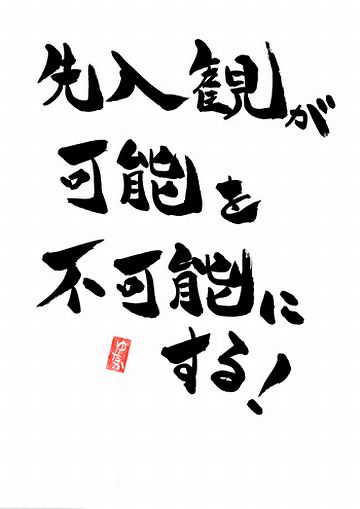 先入観が
可能を
不可能に
する!